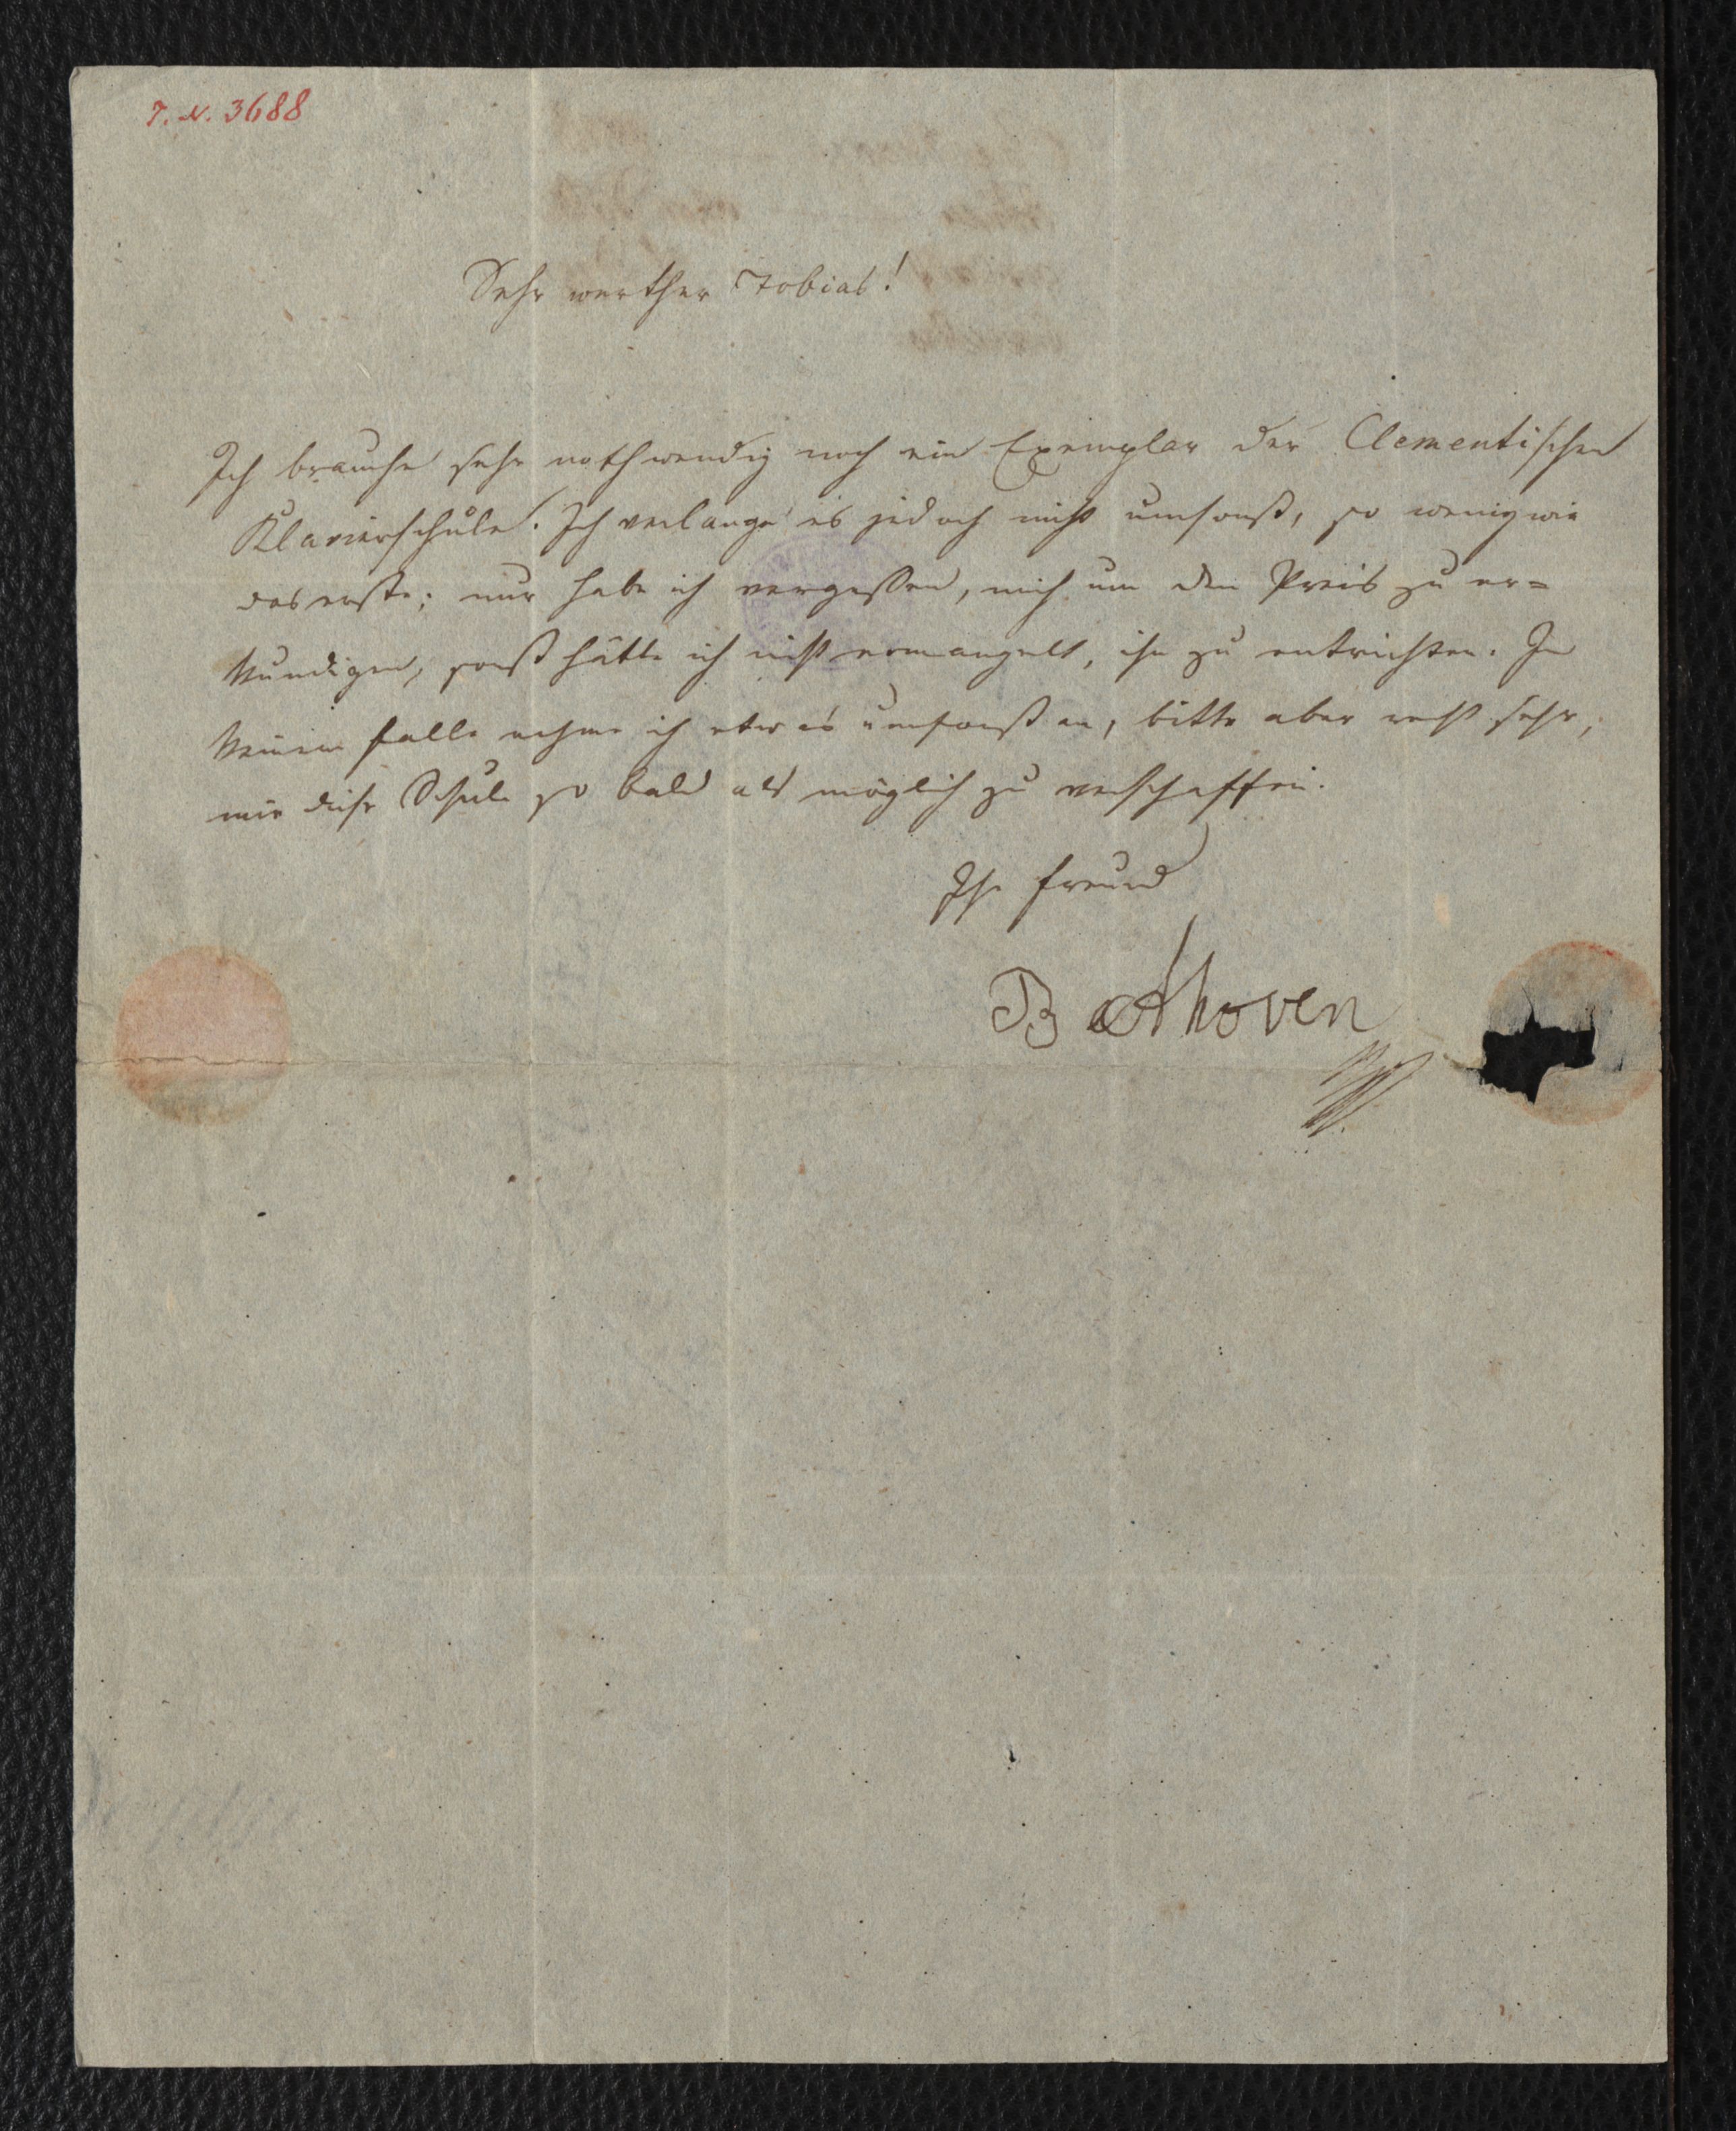 I. N. 3688
Sehr werther Tobias!
Ich brauche sehr nothwendig noch ein Exemplar der Clementischen
Klavierschule. Ich verlange es jedoch nicht umsonst, so wenig wie
das erste; nur habe ich vergessen, mich um den Preis zu er=
kundigen, sonst hätte ich nicht ermangelt, ihn zu entrichten. In
keinem Falle nehme ich etwas umsonst an, bitte aber recht sehr,
mir diese Schule so bald als möglich zu verschaffen.
Ihr Freund
Beethoven